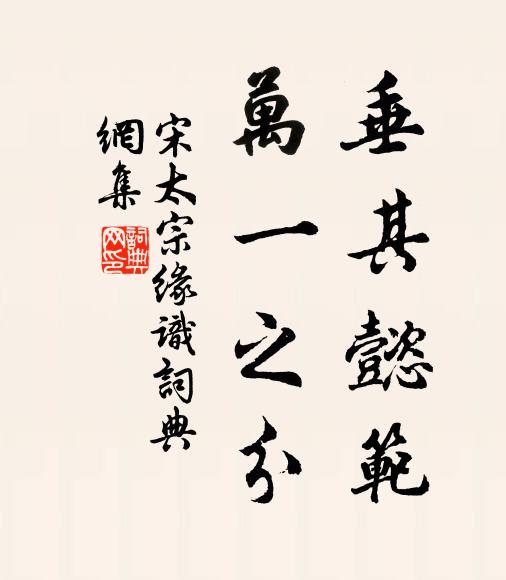 垂其懿範
萬一之分
宋太宗緣識詞典
網集
詞典
网印